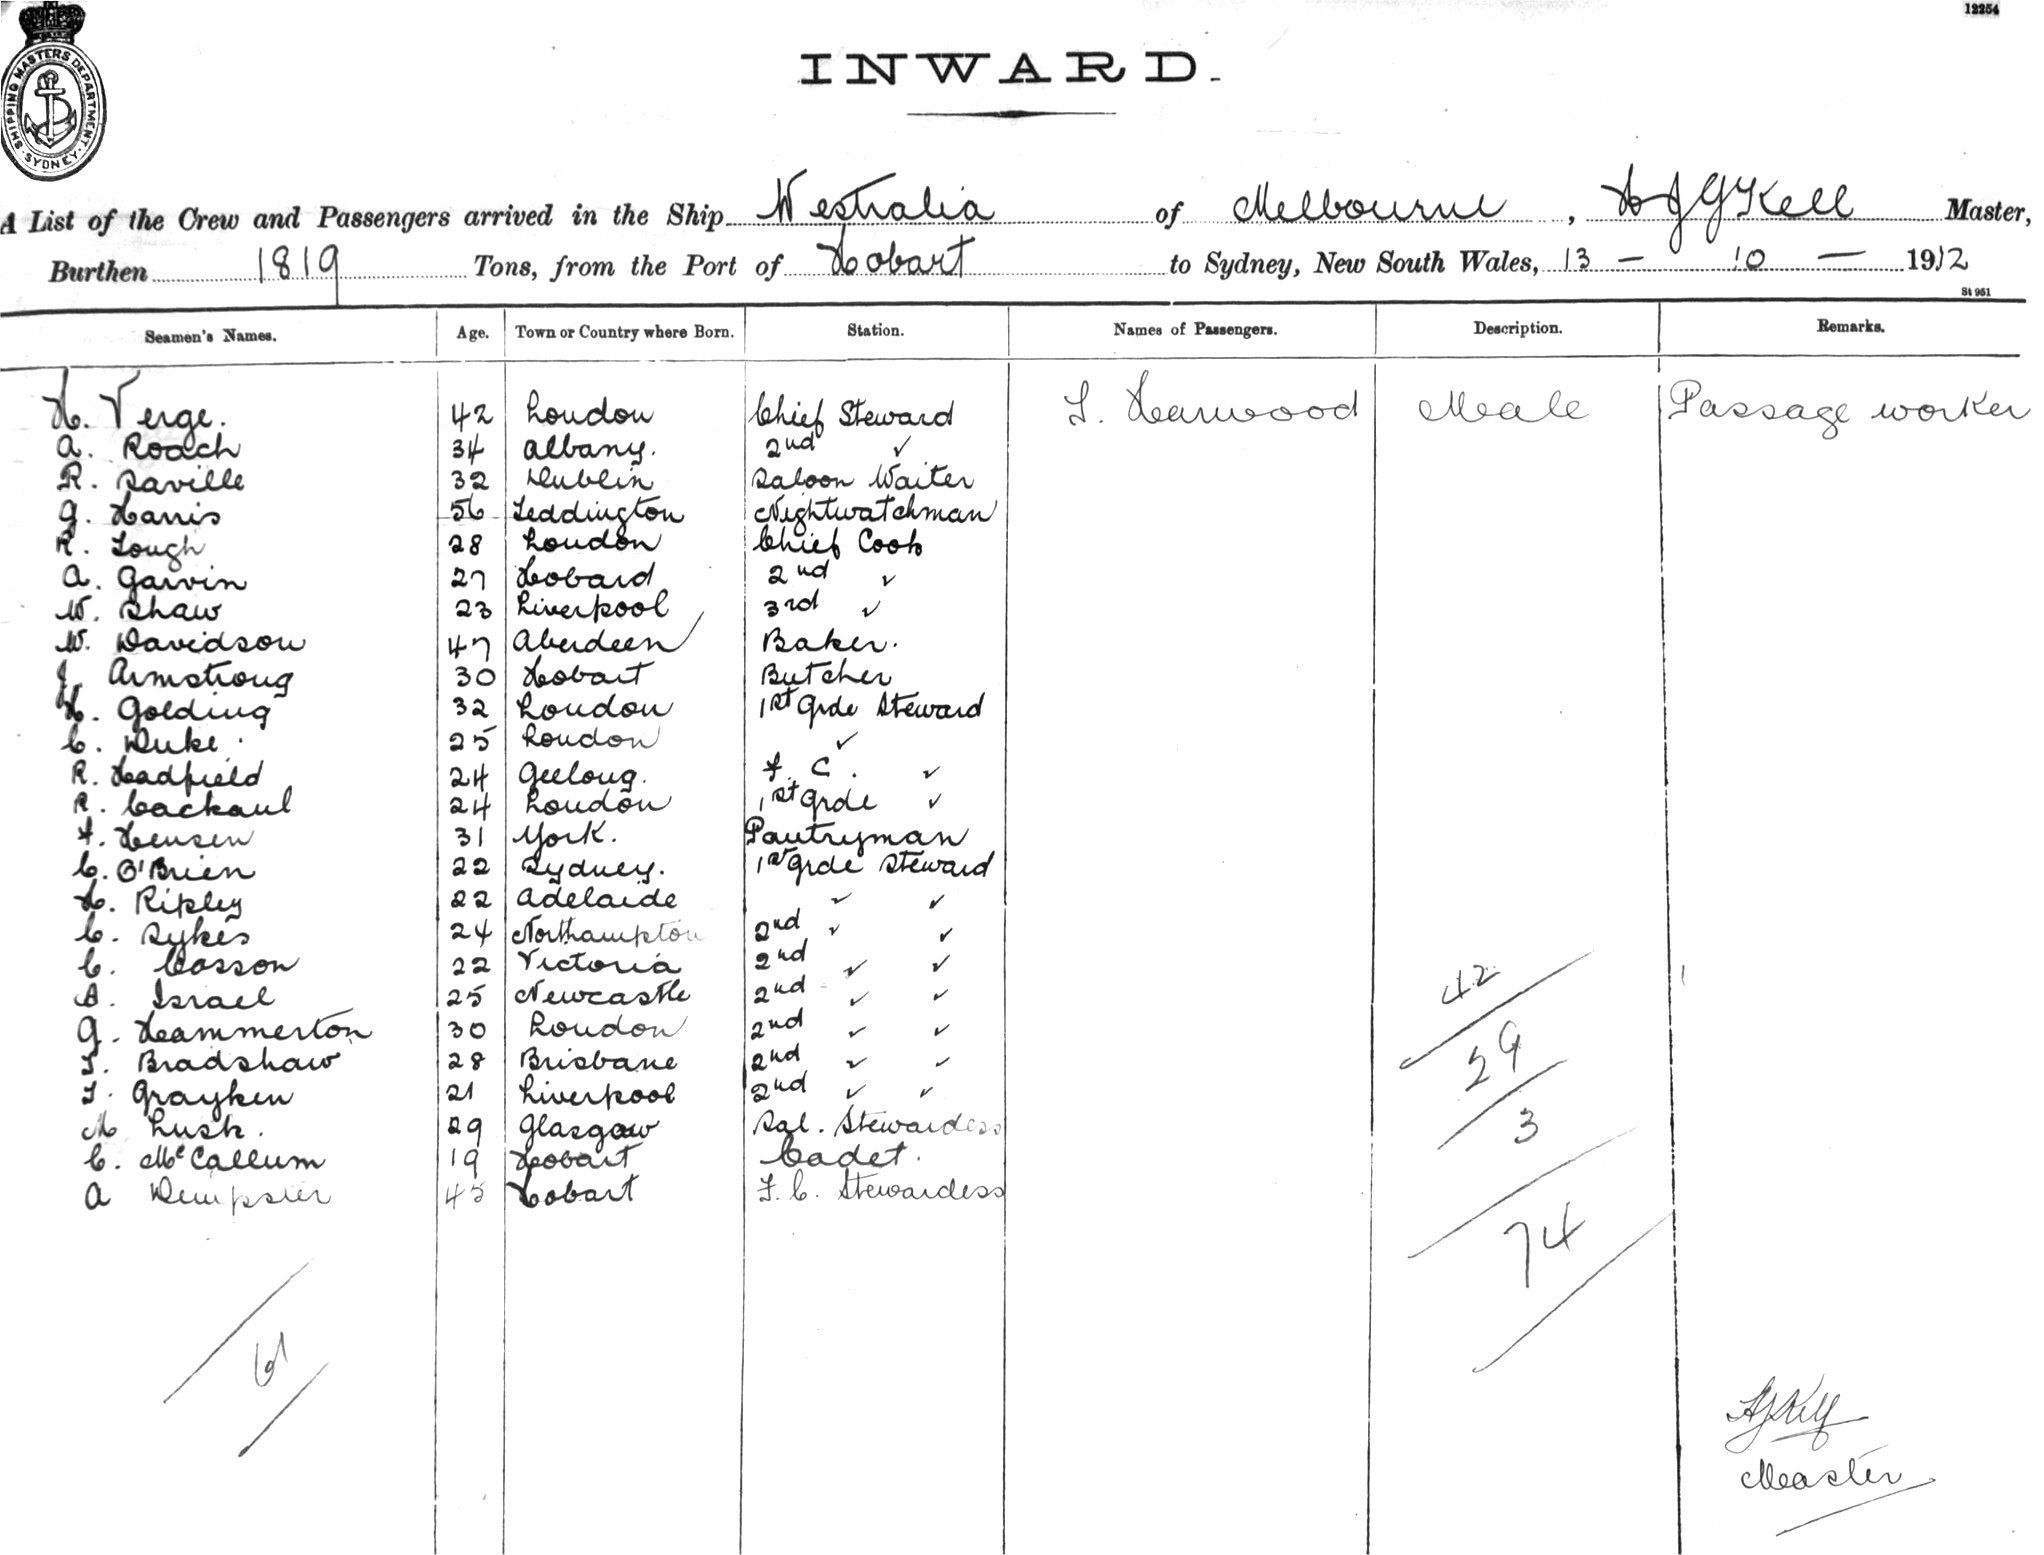 12254
SHIPPING MASTERS DEPARTMENT
SYDNEY
INWARD.
A List of the Crew and Passengers arrived in the Ship Westralia of Melbourne, H J G Kell Master,
Burthen 1819 Tons, from the Port of Hobart to Sydney, New South Wales, 13 — 10 — 1912
St 961
Seamen's Names. Age. Town or Country where Born. Station. Names of Passengers. Description. Remarks.
H. Verge. 42 London Chief Steward T. Harwood Male Passage worker
A. Roach 34 Albany. 2nd ✓
R. Saville 32 Dublin Saloon Waiter
G. Harris 56 Teddington Nightwatchman
R. Tough 28 London Chief Cook
A. Garvin 27 Hobard 2nd ✓
W. Shaw 23 Liverpool 3rd ✓
W. Davidson 47 Aberdeen Baker.
J. Armstrong 30 Hobart Butcher
H. Golding 32 London 1st Grde Steward
C. Duke 25 London ✓
R. Hadfield 24 Geelong. F. C. ✓
R. 24 London 1st Grde ✓
F. Hensen 31 York. Pantryman
C. O'Brien 22 Sydney. 1st Grde Steward
H. Ripley 22 Adelaide ✓ ✓
C. Sykes 24 Northampton 2nd ✓ ✓
C. Cosson 22 Victoria 2nd ✓ ✓
A. Israel 25 Newcastle 2nd ✓ ✓
G. Hammerton 30 London 2nd ✓ ✓
T. Bradshaw 28 Brisbane 2nd ✓ ✓
T. Grayken 21 Liverpool 2nd ✓ ✓
M Lusk. 29 Glasgow Sal. Stewardess
C. McCallum 19 Hobart Cadet.
A Dempster 45 Hobart F. C. Stewardess
42
29
3
74
H J G Kell
Master